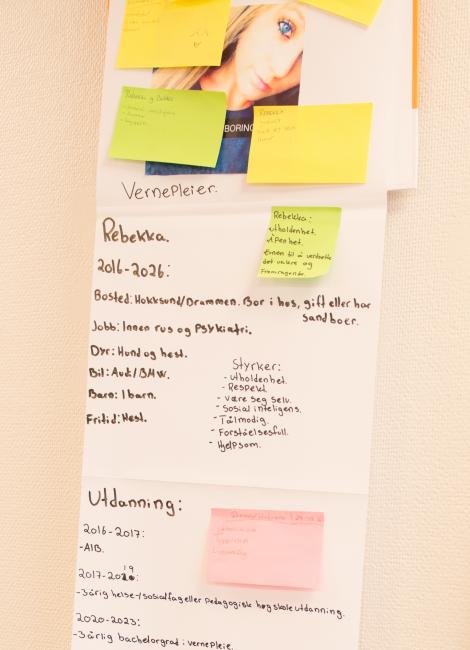 Rebekka og
BORING
REBEKKA
Vernepleier.
Rebekka:
Utholdenhet.
Åpenhet.
Evnen til å verdsette
det vakre og
Fremragende.
Rebekka.
2016-2026:
Bosted: Hokksund/Drammen. Bor i hus, gift eller har
samboer.
Jobb: Innen rus og Psykiatri.
Dyr: Hund og hest.
Bil: Audi/BMW.
Barn: 1 barn.
Fritid: Hest.
Styrker:
- Utholdenhet.
- Respekt.
- Være seg selv.
- Sosial inteligens.
- Tålmodig.
- Forståelsesfull.
- Hjelpsom.
Utdanning:
2016-2017:
- AIB.
19
2017-2020:
- 3årig helse-/sosialfag eller Pedagogisk høgskole utdanning.
2020-2023:
- 3årlig bachelorgrad i vernepleie.